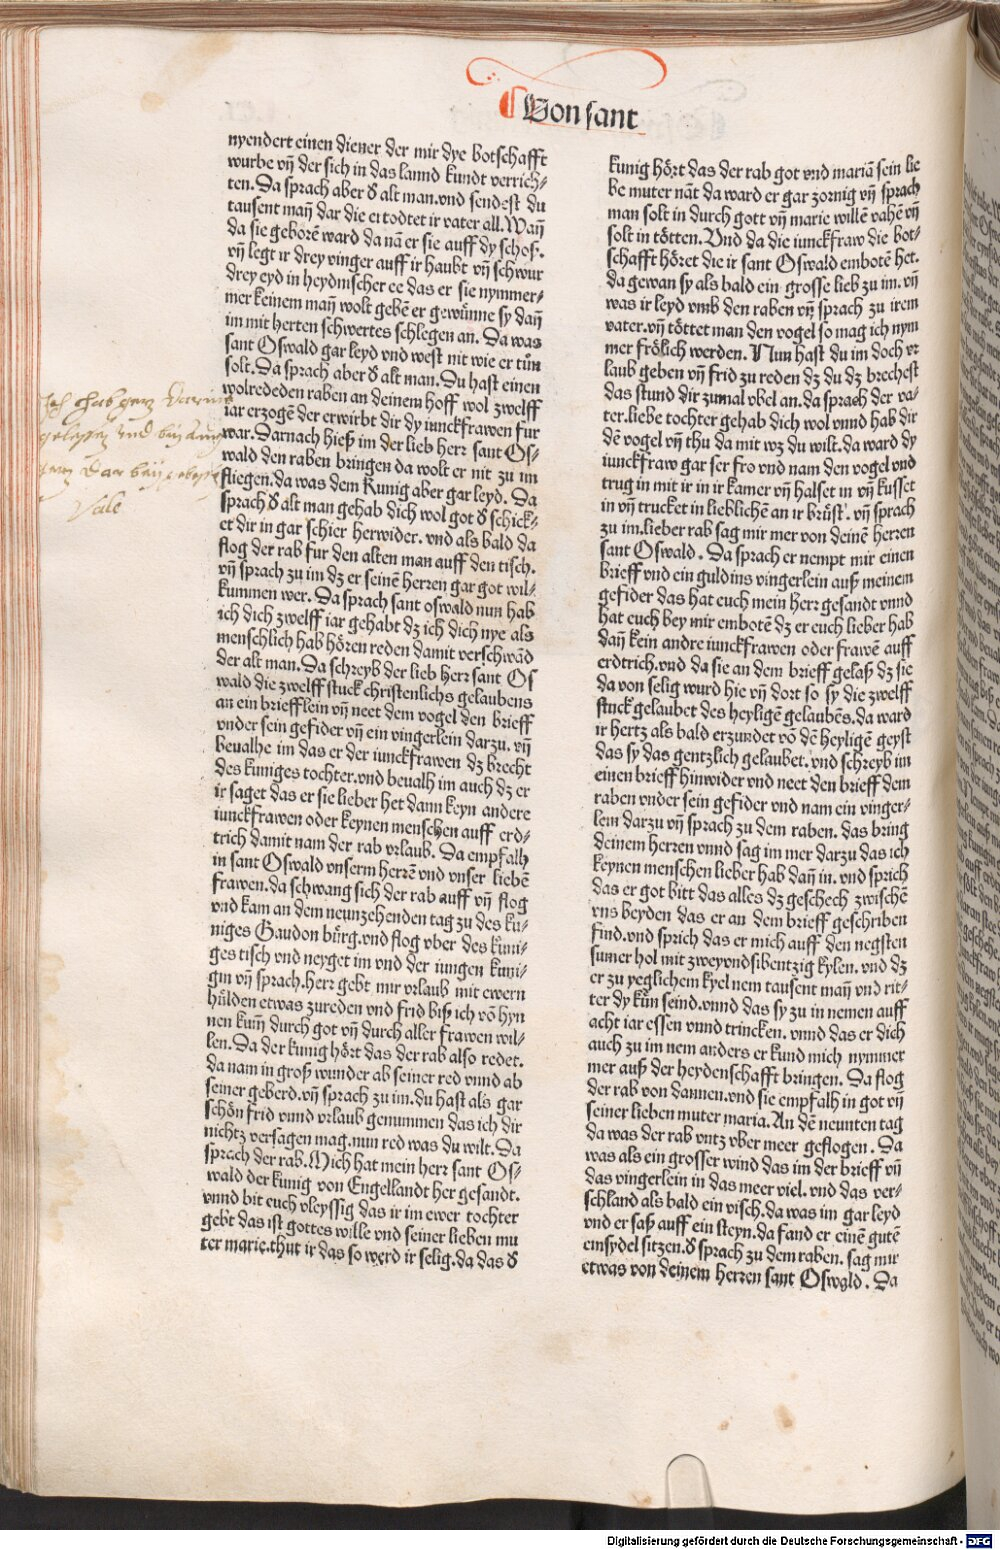 Von sant
nyendert einen diener der mir dye botschafft
wurbe vñ der sich in das lannd kundt verrich⸗
ten. Da sprach aber d̕ alt man. vnd sendest du
tausent mañ dar die er todtet ir vater all. Wañ
da sie geborẽ ward da nã er sie auff dy schos.
vñ legt ir drey vinger auff ir haubt vñ schwur
drey eyd in heydnischer ee das er sie nymmer⸗
mer keinem mañ wolt gebẽ er gewünne sy dañ
im mit herten schwertes schlegen an. Da was
sant Oswald gar leyd vnd west nit wie er tůn
solt. Da sprach aber d̕ alt man. Du hast einen
wolrededen raben an deinem hoff wol zwelff
iar erzogẽ der erwirbt dir dy iunckfrawen fur
war. Darnach hieß im der lieb herr sant Os⸗
wald den raben bringen da wolt er nit zu im
fliegen. da was dem Kunig aber gar leyd. Da
sprach d̕ alt man gehab dich wol got d̕ schick⸗
et dir in gar schier herwider. vnd als bald da
flog der rab fur den alten man auff den tisch.
vñ sprach zu im dz er seinẽ herren gar got wil⸗
kummen wer. Da sprach sant oswald nun hab
ich dich zwelff iar gehabt dz ich dich nye als
menschlich hab hören reden damit verschwãd
der alt man. Da schreyb der lieb herr sant Os
wald die zwelff stuck christenlichs gelaubens
an ein briefflein vñ neet dem vogel den brieff
vnder sein gefider vñ ein vingerlein darzu. vñ
beualhe im das er der iunckfrawen dz brecht
des kuniges tochter. vnd beualh im auch dz er
ir saget das er sie lieber het dann keyn andere
iunckfrawen oder keynen menschen auff erd⸗
trich damit nam der rab vrlaub. Da empfalh
in sant Oswald vnserm herrẽ vnd vnser liebẽ
frawen. da schwang sich der rab auff vñ flog
vnd kam an dem neunzehenden tag zu des ku⸗
niges Gaudon bürg. vnd flog vber des kuni⸗
ges tisch vnd neyget im vnd der iungen kuni⸗
gin vñ sprach. herr gebt mir vrlaub mit ewern
hulden etwas zureden vnd frid biß ich võ hyn
nen kum̃ durch got vñ durch aller frawen wil⸗
len. Da der kunig hört das der rab also redet.
da nam in groß wunder ab seiner red vnnd ab
seiner geberd. vñ sprach zu im. du hast als gar
schön frid vnnd vrlaub genummen das ich dir
nichtz versagen mag. nun red was du wilt. Da
sprach der rab. Mich hat mein herr sant Os⸗
wald der kunig von Engellandt her gesandt.
vnnd bit euch vleyssig das ir im ewer tochter
gebt das ist gottes wille vnd seiner lieben mu
ter marie. thut ir das so werd ir selig. da das d̕
kunig hört das der rab got vnd mariã sein lie
be muter nãt da ward er gar zornig vñ sprach
man solt in durch gott vñ marie willẽ vahẽ vñ
solt in tötten. Vnd da die iunckfraw die bot⸗
schafft höret die ir sant Oswald embotẽ het.
da gewan sy als bald ein grosse lieb zu im. vñ
was ir leyd vmb den raben vñ sprach zu irem
vater. vñ töttet man den vogel so mag ich nym
mer frölich werden. Nun hast du im doch vr
laub geben vñ frid zu reden dz du dz brechest
das stund dir zumal vbel an. da sprach der va⸗
ter. liebe tochter gehab dich wol vnnd hab dir
dẽ vogel vñ thu da mit wz du wilt. da ward dy
iunckfraw gar ser fro vnd nam den vogel vnd
trug in mit ir in ir kamer vñ halset in vñ kusset
in vñ trucket in lieblichẽ an ir brüst. vñ sprach
zu im. lieber rab sag mir mer von deinẽ herren
sant Oswald. Da sprach er nempt mir einen
brieff vnd ein guldins vingerlein auß meinem
gefider das hat euch mein herr gesandt vnnd
hat euch bey mir embotẽ dz er euch lieber hab
dañ kein andre iunckfrawen oder frawẽ auff
erdtrich. vnd da sie an dem brieff gelaß dz sie
da von selig wurd hie vñ dort so sy die zwelff
stuck gelaubet des heyligẽ gelaubẽs. da ward
ir hertz als bald erzundet võ dẽ heyligẽ geyst
das sy das gentzlich gelaubet. vnd schreyb im
einen brieff hinwider vnd neet den brieff dem
raben vnder sein gefider vnd nam ein vinger⸗
lein darzu vñ sprach zu dem raben. das bring
deinem herren vnnd sag im mer darzu das ich
keynen menschen lieber hab dañ in. vnd sprich
das er got bitt das alles dz geschech zwischẽ
vns beyden das er an dem brieff geschriben
find. vnd sprich das er mich auff den negsten
sumer hol mit zweyvndsibentzig kylen. vnd dz
er zu yeglichem kyel nem tausent mañ vnd rit⸗
ter dy kün seind. vnnd das sy zu in nemen auff
acht iar essen vnnd trincken. vnnd das er dich
auch zu im nem anders er kund mich nymmer
mer auß der heydenschafft bringen. Da flog
der rab von dannen. vnd sie empfalh in got vñ
seiner lieben muter maria. An dẽ neunten tag
da was der rab vntz vber meer geflogen. Da
was als ein grosser wind das im der brieff vñ
das vingerlein in das meer viel. vnd das ver⸗
schland als bald ein visch. da was im gar leyd
vnd er saß auff ein steyn. da fand er einẽ gutẽ
einsydel sitzen. d̕ sprach zu dem raben. sag mir
etwas von deinem herren sant Oswald. Da
Vale
Digitalisierung gefördert durch die Deutsche Forschungsgemeinschaft - DFG